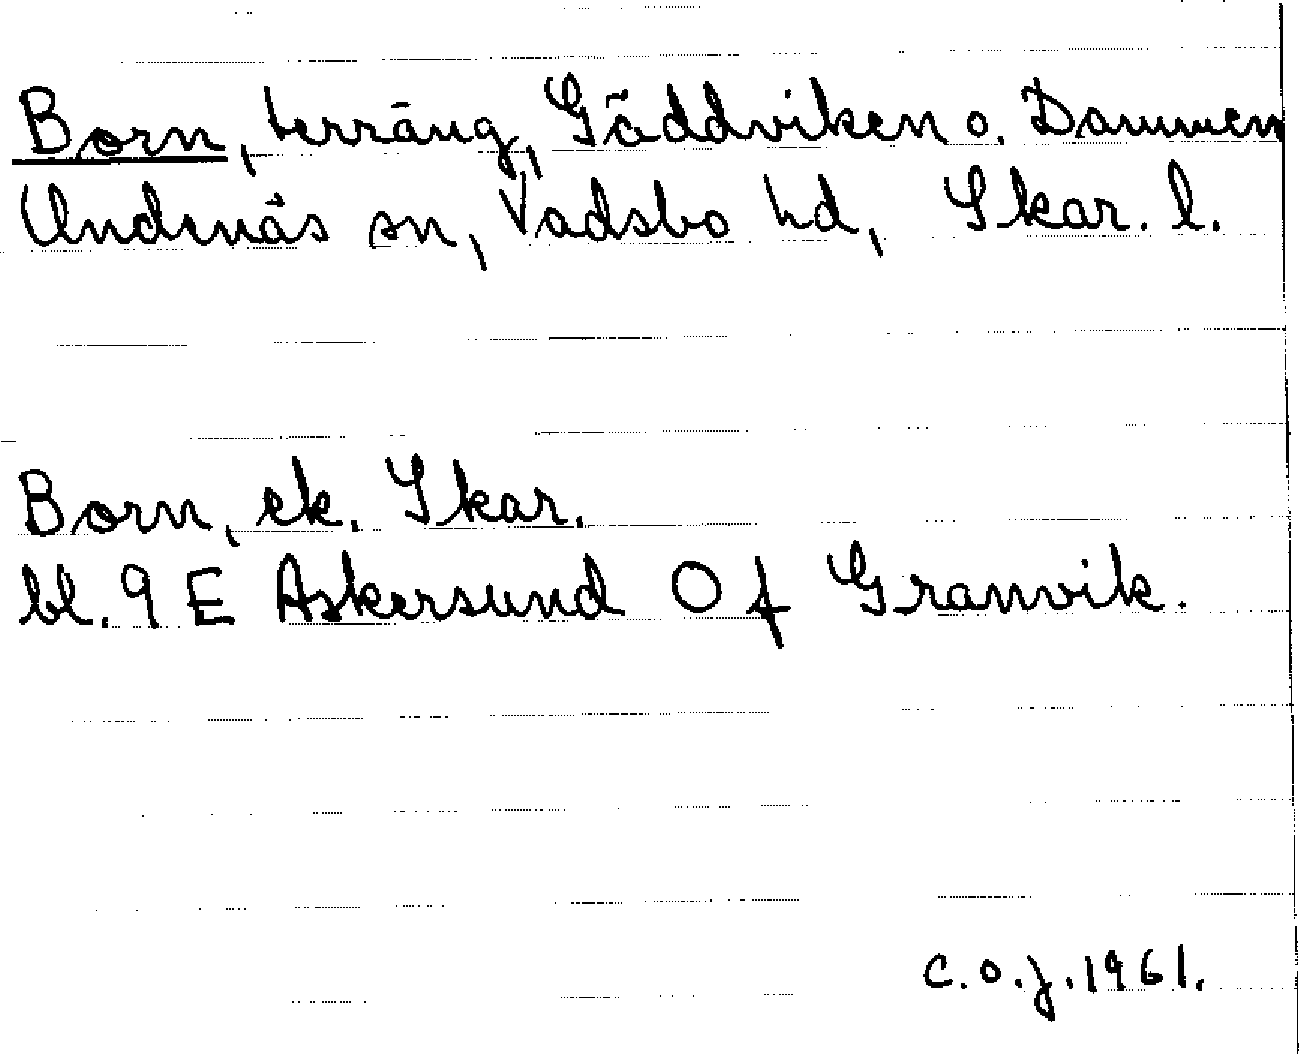 Born, terräng, Gäddviken o. Dammen
Undenäs sn, Vadsbo hd, Skar. l.
Born, ek. Skar.
bl. 9 E Askersund 0 f Granvik.
C.O.J. 1961.